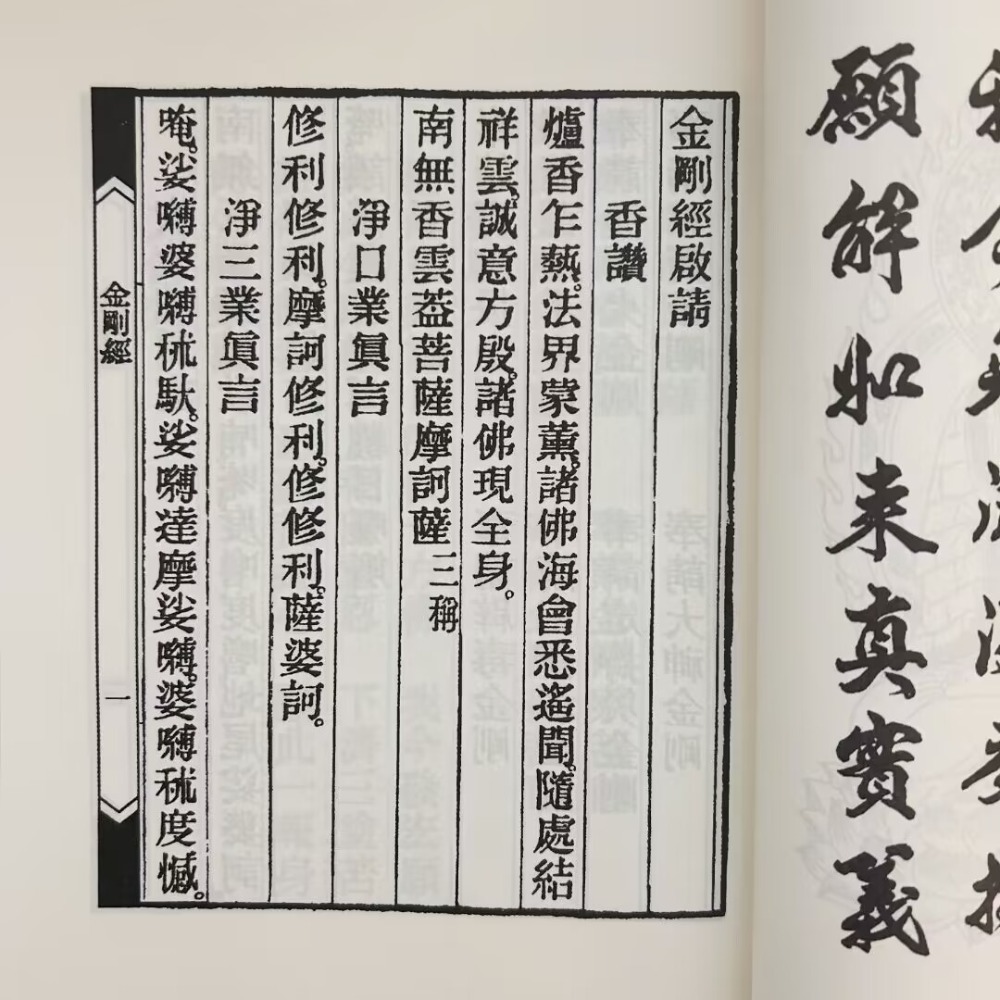 願解如来真實義
金剛經啟請
香讚
爐香乍熱。法界蒙薰。諸佛海會悉遙聞。隨處結
祥雲。誠意方殷。諸佛現全身。
南無香雲葢菩薩摩訶薩 三稱
淨口業眞言
修利修利。摩訶修利。修修利。薩婆訶。
淨三業眞言
唵。娑嚩婆嚩秫馱。娑嚩達摩娑嚩。婆嚩秫度憾。
金剛經 一